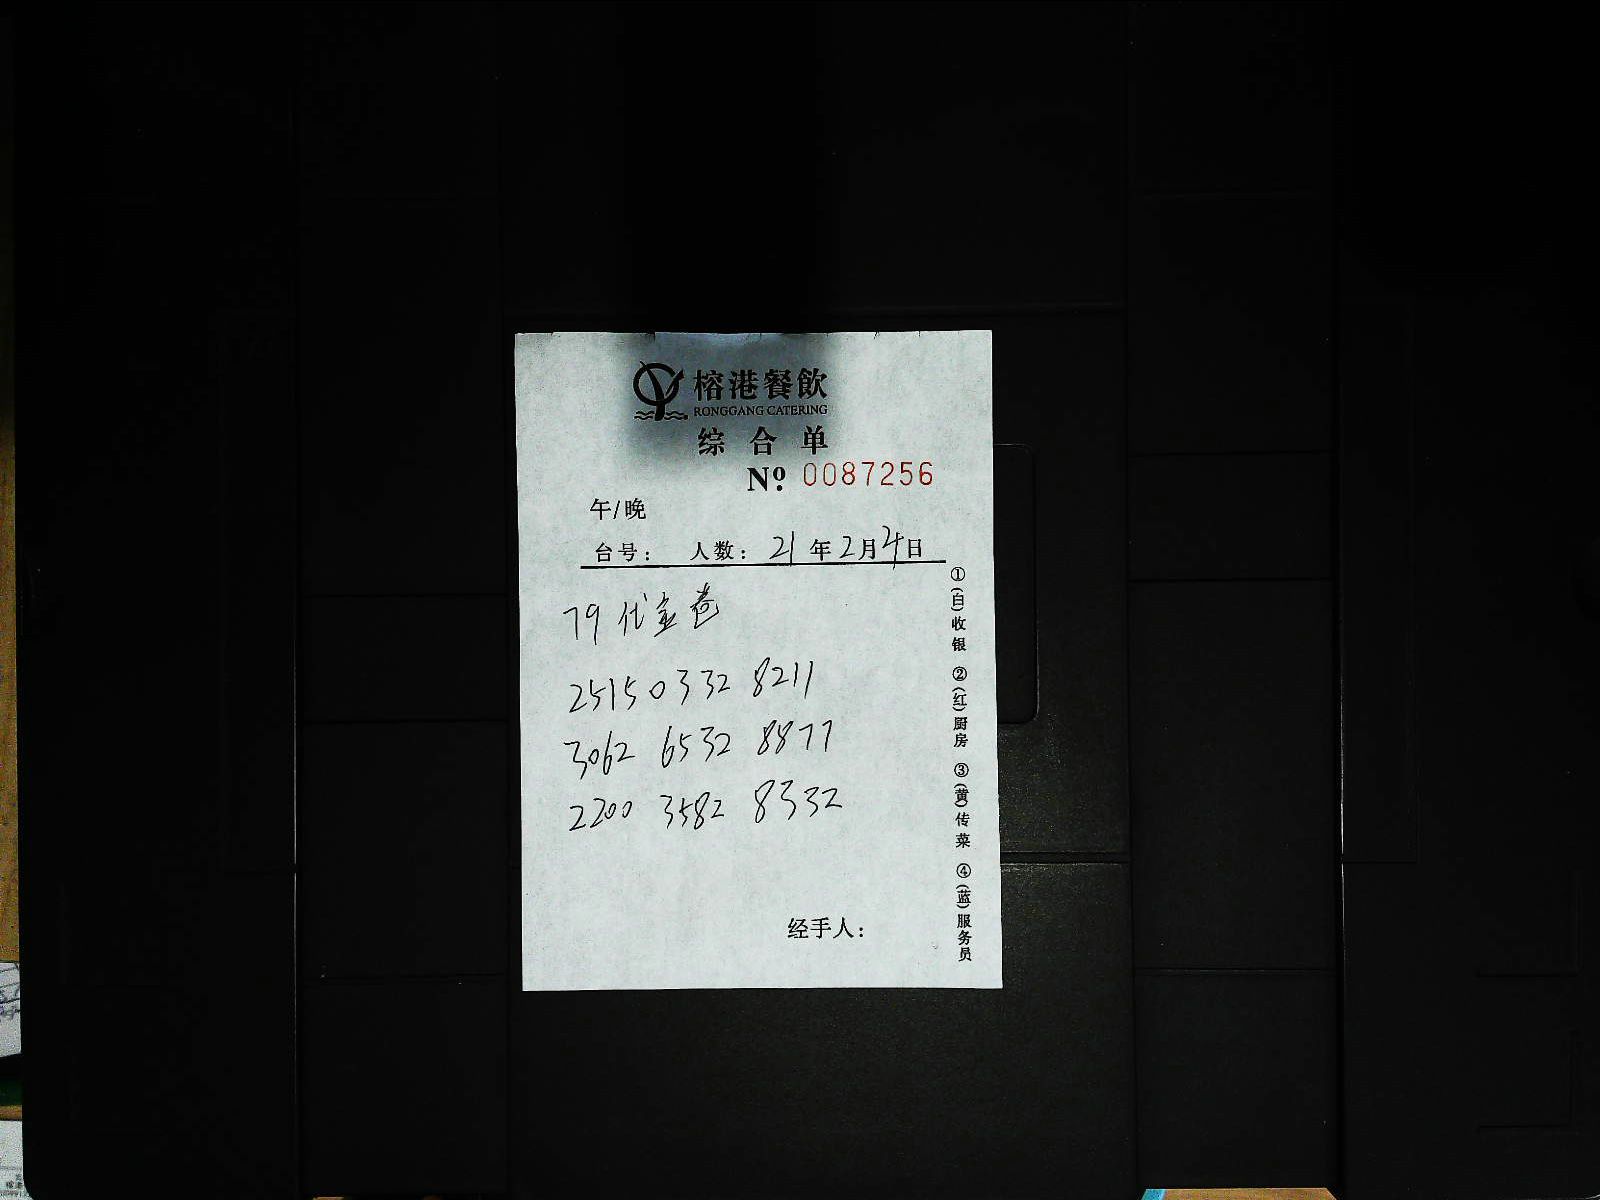 榕港餐飲
RONGGANG CATERING
综合单
Nº 0087256
午/晚
台号： 人数： 21 年 2 月 4 日
79 代金卷
25150332 8211
3062 6532 8877
2200 3582 8332
经手人：
①(白)收银 ②(红)厨房 ③(黄)传菜 ④(蓝)服务员